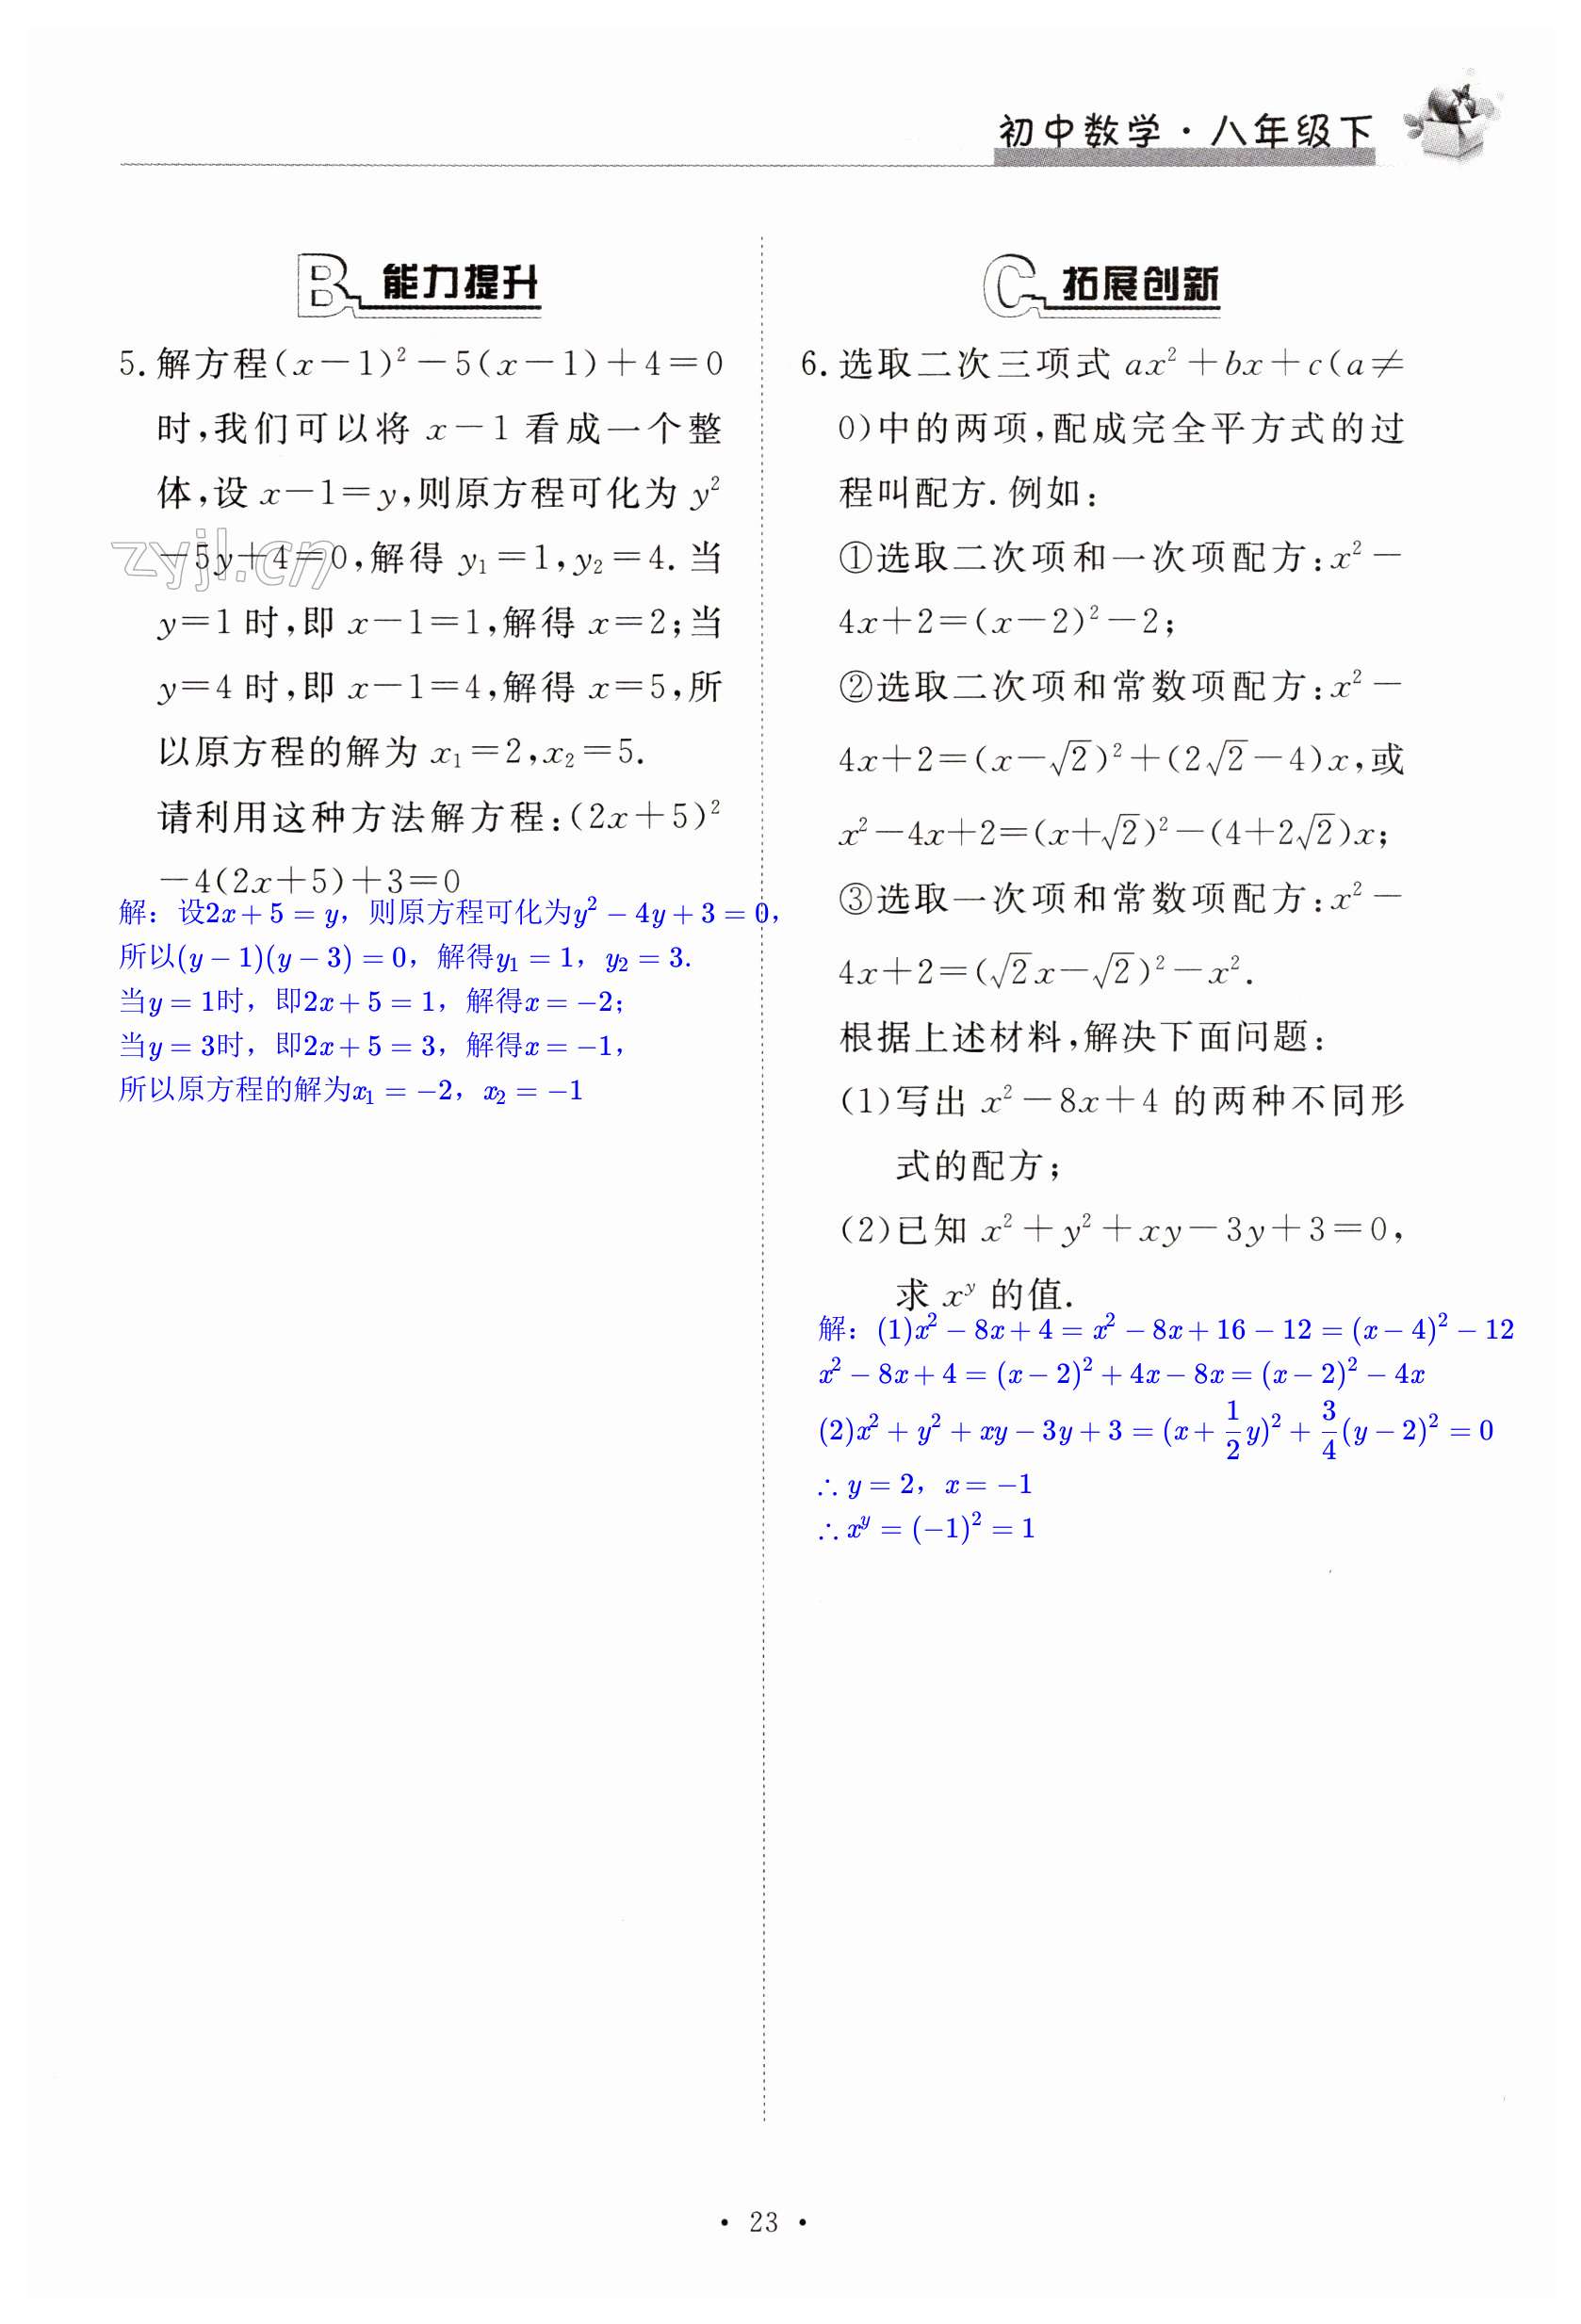 初中数学·八年级下
B 能力提升
5. 解方程(x－1)²－5(x－1)＋4＝0
时,我们可以将 x－1 看成一个整
体,设 x－1＝y,则原方程可化为 y²
－5y＋4＝0,解得 y₁＝1,y₂＝4. 当
y＝1 时,即 x－1＝1,解得 x＝2;当
y＝4 时,即 x－1＝4,解得 x＝5,所
以原方程的解为 x₁＝2,x₂＝5.
请利用这种方法解方程:(2x＋5)²
－4(2x＋5)＋3＝0
zyjl.cn
解：设2x + 5 = y，则原方程可化为y² − 4y + 3 = 0，
所以(y − 1)(y − 3) = 0，解得y₁ = 1，y₂ = 3.
当y = 1时，即2x + 5 = 1，解得x = −2；
当y = 3时，即2x + 5 = 3，解得x = −1，
所以原方程的解为x₁ = −2，x₂ = −1
C 拓展创新
6. 选取二次三项式 ax²＋bx＋c(a≠
0)中的两项,配成完全平方式的过
程叫配方. 例如:
①选取二次项和一次项配方:x²－
4x＋2＝(x－2)²－2;
②选取二次项和常数项配方:x²－
4x＋2＝(x－√2)²＋(2√2－4)x,或
x²－4x＋2＝(x＋√2)²－(4＋2√2)x;
③选取一次项和常数项配方:x²－
4x＋2＝(√2x－√2)²－x².
根据上述材料,解决下面问题:
(1)写出 x²－8x＋4 的两种不同形
式的配方;
(2)已知 x²＋y²＋xy－3y＋3＝0,
求 xʸ 的值.
解：(1)x² − 8x + 4 = x² − 8x + 16 − 12 = (x − 4)² − 12
x² − 8x + 4 = (x − 2)² + 4x − 8x = (x − 2)² − 4x
(2)x² + y² + xy − 3y + 3 = (x + 1/2 y)² + 3/4 (y − 2)² = 0
∴ y = 2，x = −1
∴ xʸ = (−1)² = 1
• 23 •